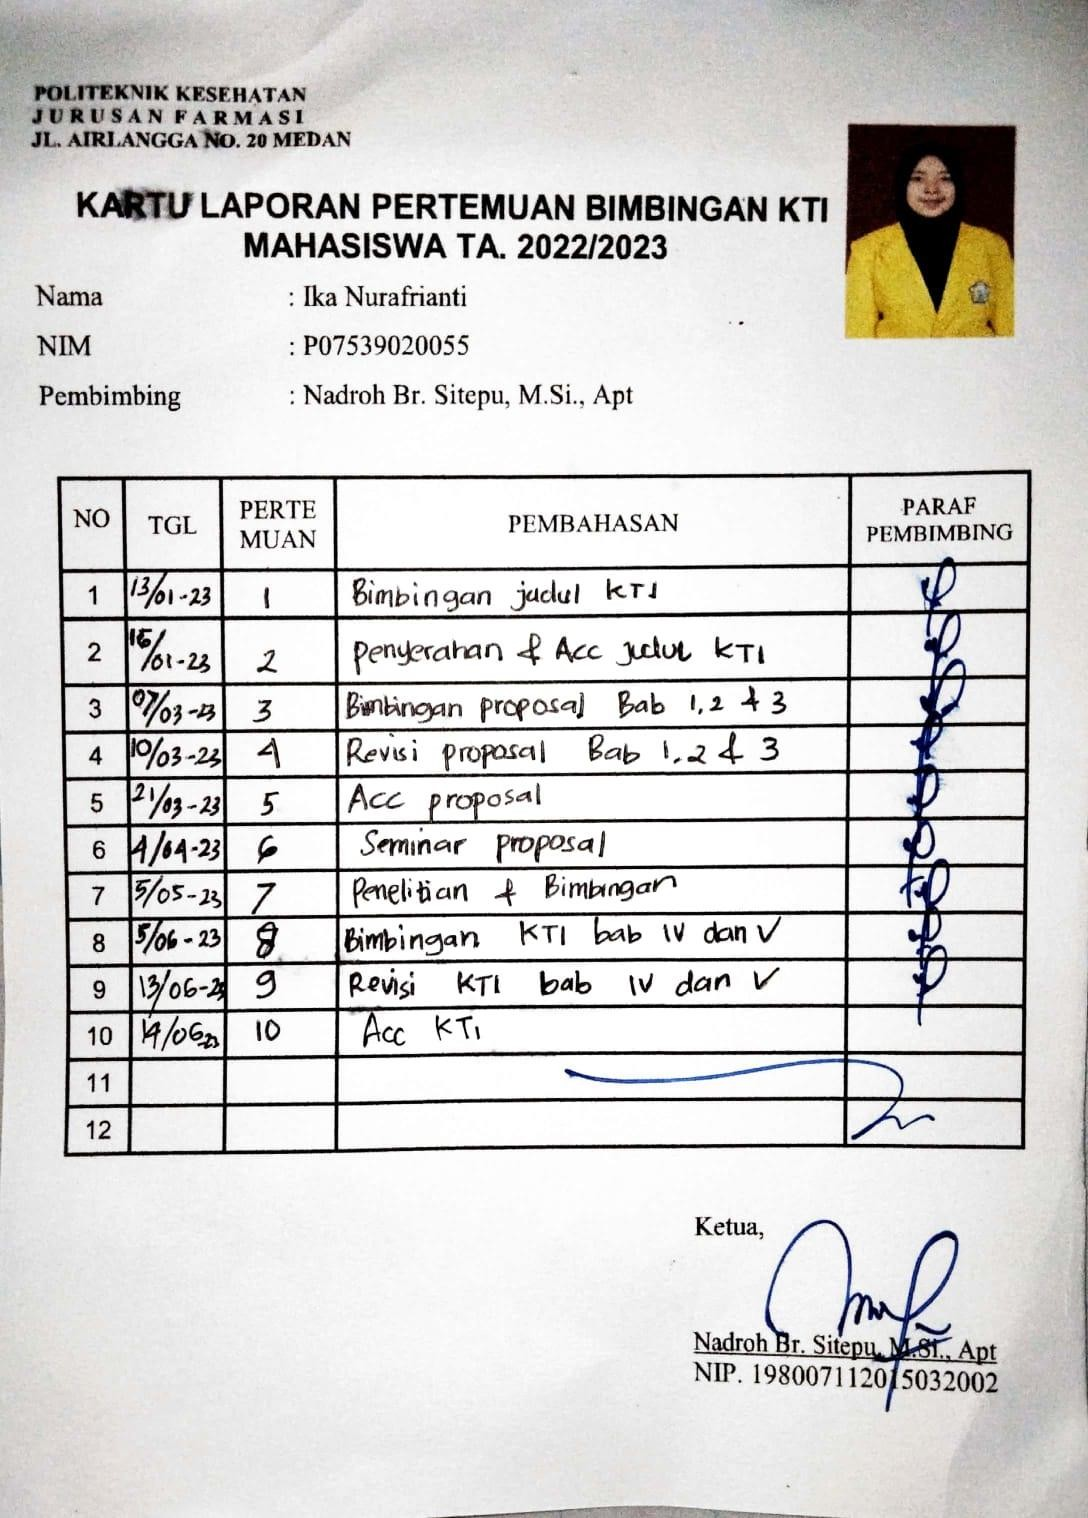 POLITEKNIK KESEHATAN
JURUSAN FARMASI
JL. AIRLANGGA NO. 20 MEDAN
KARTU LAPORAN PERTEMUAN BIMBINGAN KTI
MAHASISWA TA. 2022/2023
Nama : Ika Nurafrianti
NIM : P07539020055
Pembimbing : Nadroh Br. Sitepu, M.Si., Apt
NO TGL PERTE MUAN PEMBAHASAN PARAF PEMBIMBING
1 13/01-23 1 Bimbingan judul KTI
2 /01-23 2 Penyerahan & Acc judul KTI
3 07/03-23 3 Bimbingan proposal Bab 1, 2 & 3
4 10/03-23 4 Revisi proposal Bab 1, 2 & 3
5 21/03-23 5 Acc proposal
6 4/04-23 6 Seminar proposal
7 5/05-23 7 Penelitian & Bimbingan
8 5/06-23 8 Bimbingan KTI bab IV dan V
9 13/06-23 9 Revisi KTI bab IV dan V
10 14/06 23 10 Acc KTI
11
12
Ketua,
Nadroh Br. Sitepu, M.Si., Apt
NIP. 198007112015032002